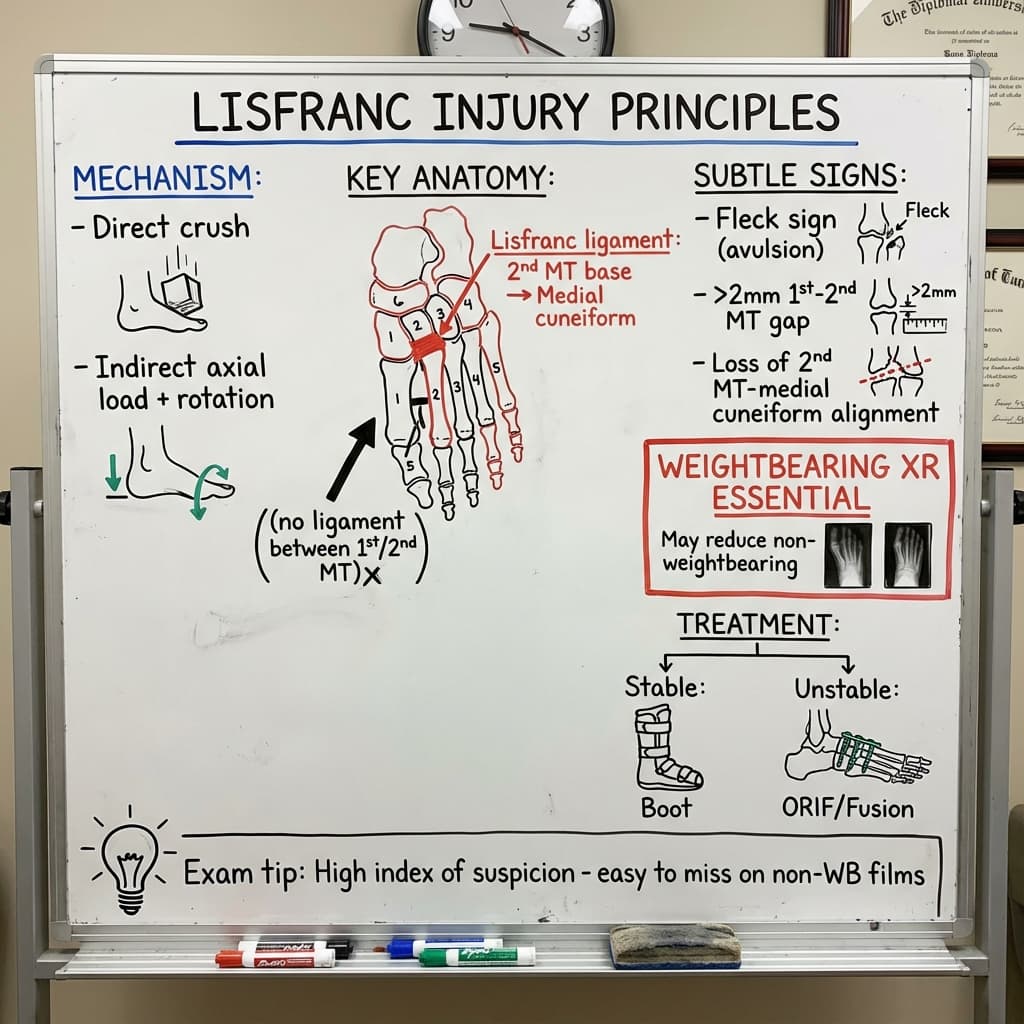 10
9
3
The Diplomat
LISFRANC INJURY PRINCIPLES
MECHANISM:
- Direct crush
- Indirect axial
load + rotation
KEY ANATOMY:
Lisfranc ligament:
2nd MT base
→ Medial
cuneiform
6
1 2 3 4
1 2 3 4 5
5
(no ligament
between 1st/2nd
MT) X
SUBTLE SIGNS:
- Fleck sign
(avulsion)
Fleck
- >2mm 1st-2nd
MT gap
>2mm
- Loss of 2nd
MT-medial
cuneiform alignment
WEIGHTBEARING XR
ESSENTIAL
May reduce non-
weightbearing
TREATMENT:
Stable:
Unstable:
Boot
ORIF/Fusion
Exam tip: High index of suspicion - easy to miss on non-WB films